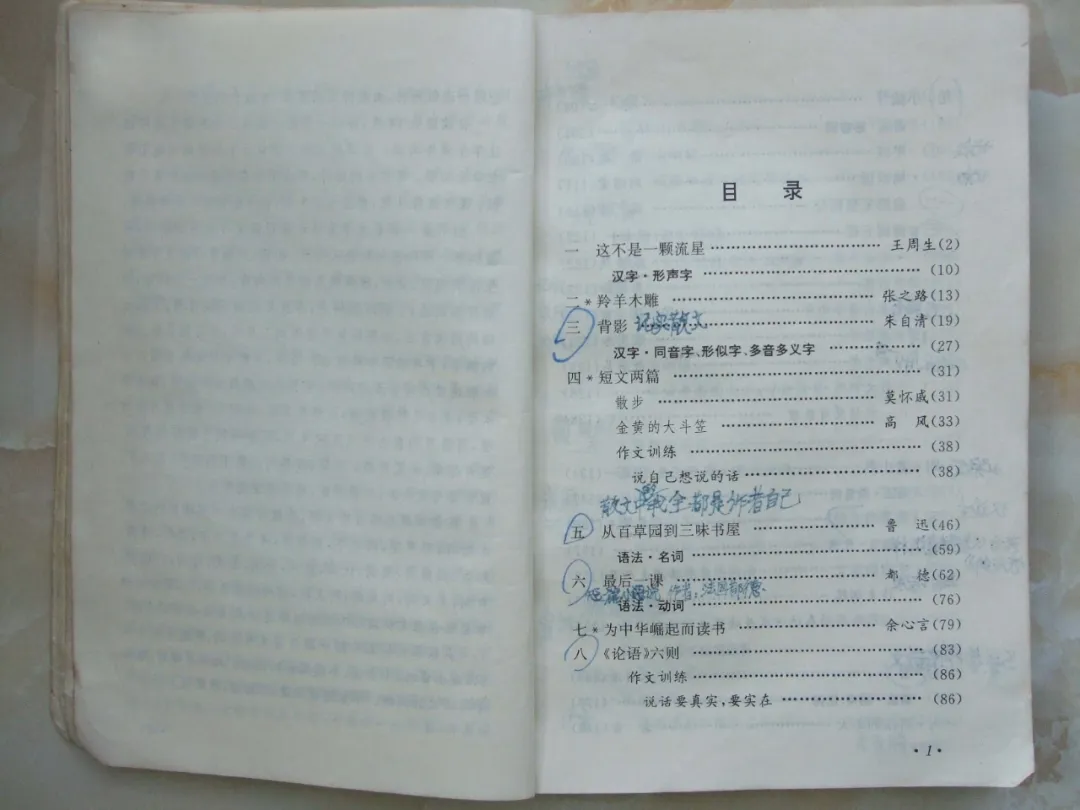 目 录
一 这不是一颗流星 …………………… 王周生(2)
汉字·形声字 …………………… (10)
二*羚羊木雕 …………………… 张之路(13)
三 背影 …………………… 朱自清(19)
记实散文
汉字·同音字、形似字、多音多义字 ………… (27)
四*短文两篇 …………………… (31)
散步 …………………… 莫怀戚(31)
金黄的大斗笠 …………………… 高 风(33)
作文训练 …………………… (38)
说自己想说的话 …………………… (38)
散文 我全都是作者自己
五 从百草园到三味书屋 …………………… 鲁 迅(46)
语法·名词 …………………… (59)
六 最后一课 …………………… 都 德(62)
短篇小说 作者:法国
语法·动词 …………………… (76)
七*为中华崛起而读书 …………………… 余心言(79)
八 《论语》六则 …………………… (83)
作文训练 …………………… (86)
说话要真实,要实在 …………………… (86)
·1·